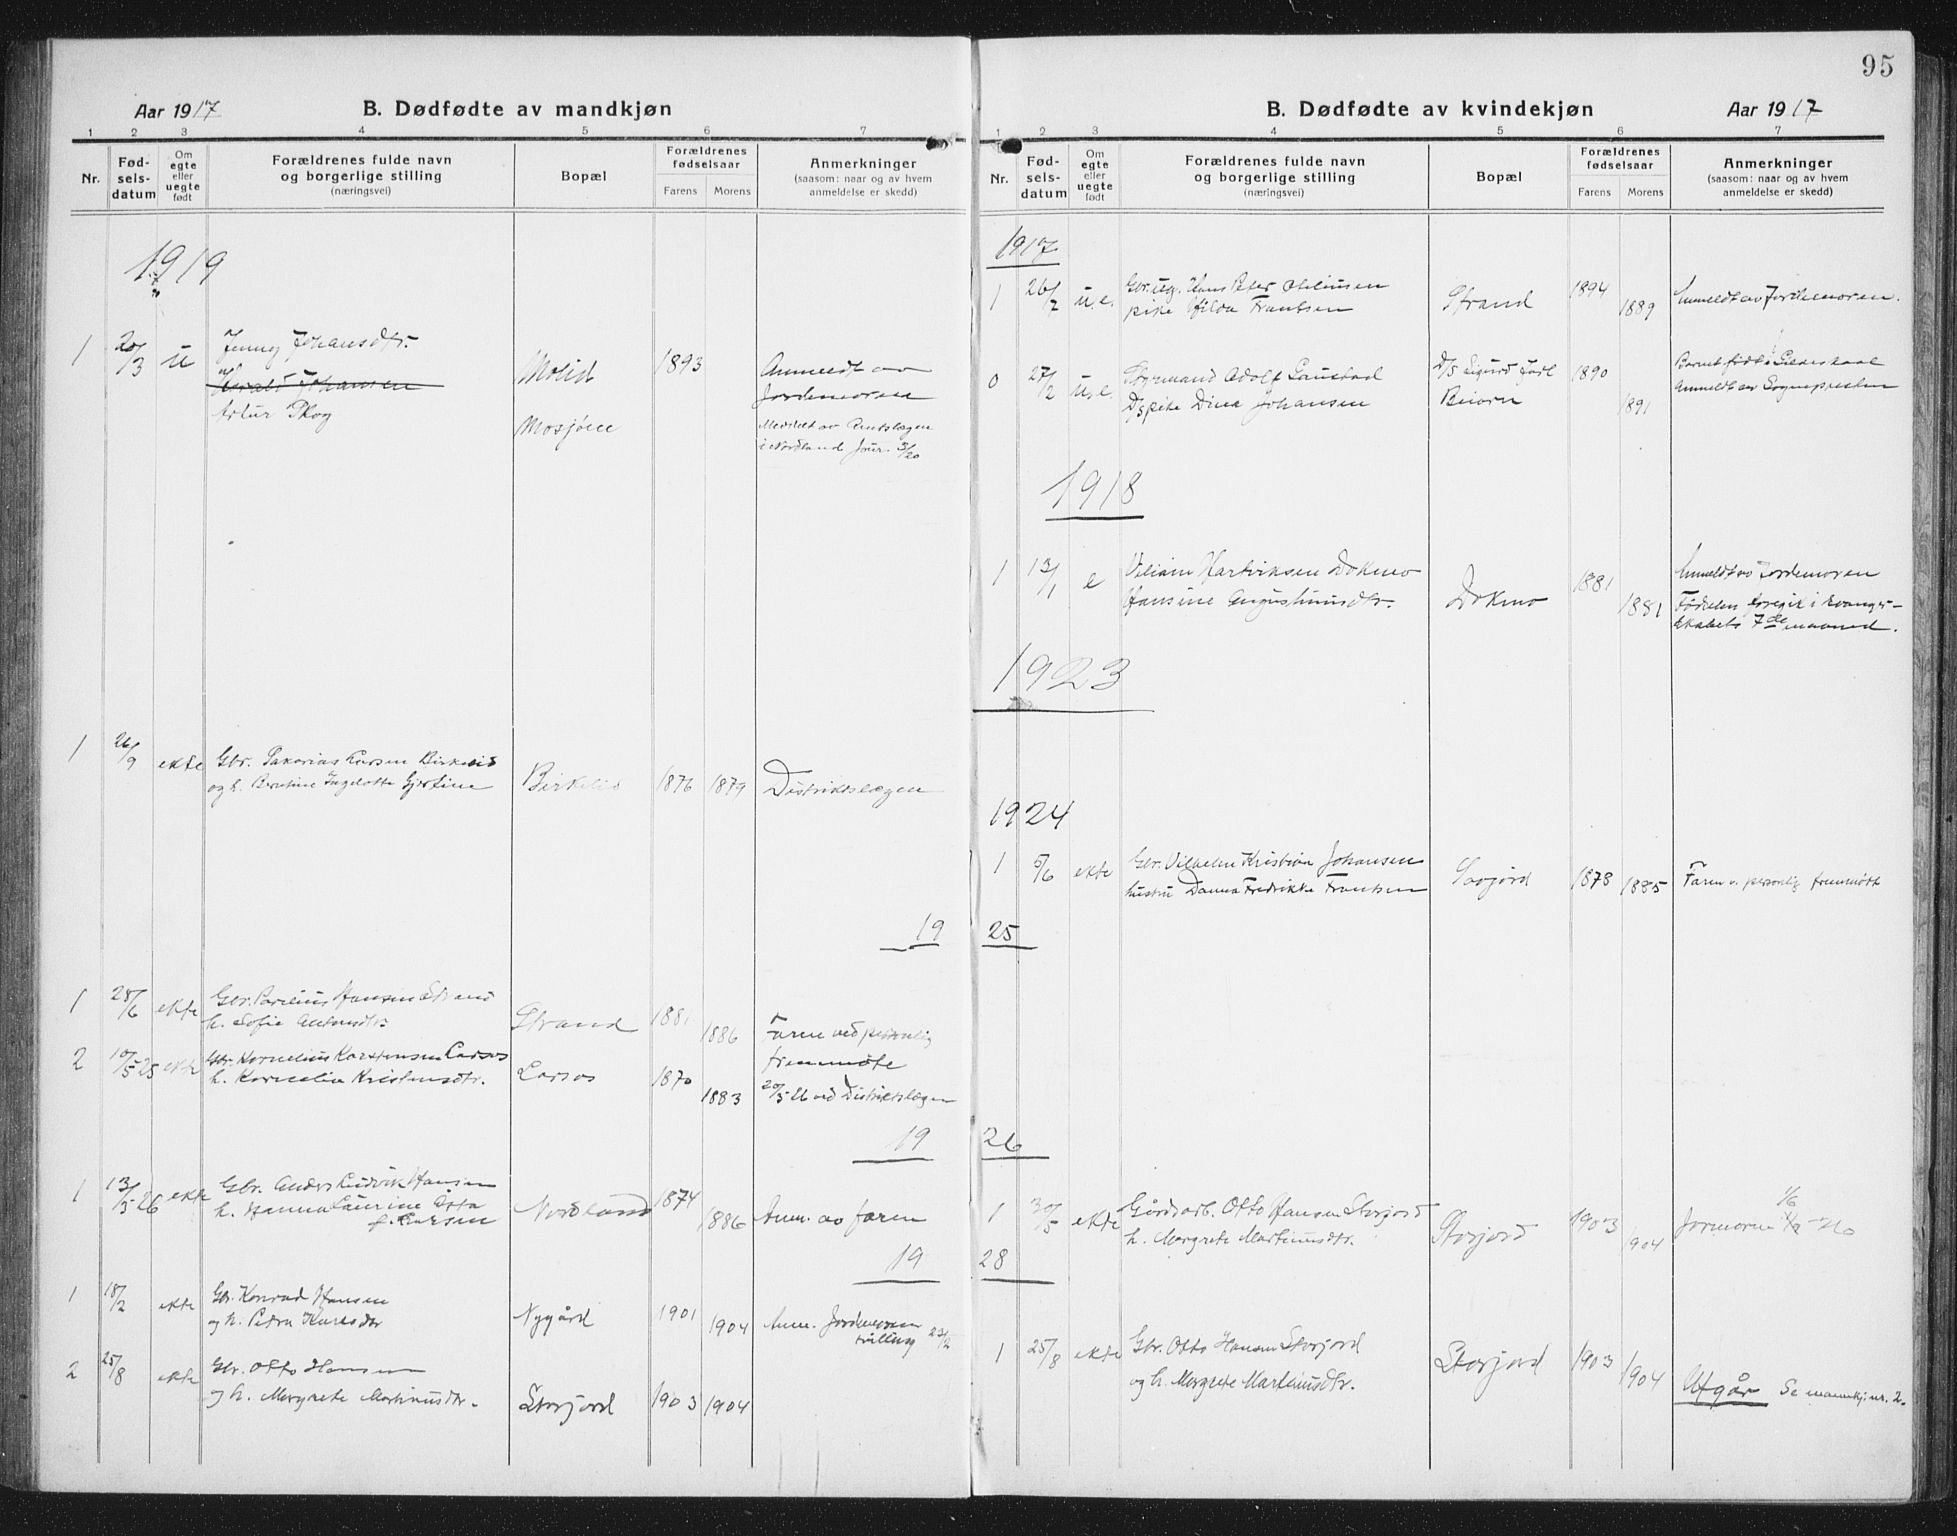 Aar 1917
B. Dødfødte av mandkjøn
1 2 3 4 5 6 7
Nr.
Fød-
sels-
datum
Om
egte
eller
uegte
født
Forældrenes fulde navn
og borgerlige stilling
(næringsvei)
Bopæl
Forældrenes
fødselsaar
Farens Morens
Anmerkninger
(saasom: naar og av hvem
anmeldelse er skedd)
1919
1 20/3 u Jenny Johansdtr. Molid 1893 Anmeldt av
Jordemoren
Johansen
Artur Skog Mosjøen
i Nordland Jour. 3/20
1 26/9 ekte Gbr. Sakarias Larsen Birkelid
og h. Berntine Ingelotte Gjertine Birkelid 1876 1879 Distriktslægen
19
1 28/6 ekte Gbr. Parelius Hansen Strand
h. Sofie Antonsdtr. Strand 1886 Faren ved personlig
fremmøte
2 10/5 25 ekte Gbr. Kornelius Karstensen Larsos
h. Kornelia Kristensdtr. Larsos 1870 1883 20/3 26 ved Distriktslægen
19
1 13/5 26 ekte Gbr. Anders Ludvik Hansen
h. Hanna Laurine Åsta
f. Larsen Nordland 1874 1886 Anm. av faren
19
1 18/2 ekte Gbr. Konrad Hansen
og h. Petra Karlsdtr Nygård 1901 1904 Anm. Jordemoren
tvilling 23/2
2 25/8 ekte Gbr. Otto Hansen
og h. Margrete Martinusdtr. Storjord 1903 1904
95
B. Dødfødte av kvindekjøn
Aar 1917
1 2 3 4 5 6 7
Nr.
Fød-
sels-
datum
Om
egte
eller
uegte
født
Forældrenes fulde navn
og borgerlige stilling
(næringsvei)
Bopæl
Forældrenes
fødselsaar
Farens Morens
Anmerkninger
(saasom: naar og av hvem
anmeldelse er skedd)
1917
1 26/7 u.e. Gbr. ug. Hans Peter Olsen
pike Hilda Frantsen Strand 1894 1889 Anmeldt av Jordemoren.
0 27/2 u.e. Styrmand Adolf Saustad
pike Dina Johansen D/S Sigurd Jarl
Beiarn 1890 1891 Barnet født i Gildeskaal
Anmeldt av Sognepresten
1918
1 13/1 e Viliam Hartviksen Dokmo
Hansine Augustinusdtr. Dokmo 1881 1881 Anmeldt av Jordemoren
Fødselen foregik i svanger-
skabets 7de maaned.
1923
1924
1 5/6 ekte Gbr. Vilhelm Kristian Johansen
hustru Danna Fredrikke Frantsen Sorjord 1878 1885 Faren v. personlig fremmøtt
25
26
1 30/5 ekte Gårdarb. Otto Hansen Storjord
h. Margrete Martinusdtr. Storjord 1903 1904 Jormoren 1/6
28
1 25/8 ekte Gbr. Otto Hansen Storjord
og h. Margrete Martinusdtr. Storjord 1903 1904 Utgår Se mannkj. nr. 2.